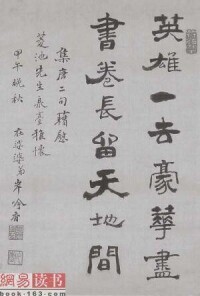 英雄一去豪華盡
書卷長留天地間
集唐二句藉慰
菱池先生懷
甲午晚秋
网易读书
book.163.com